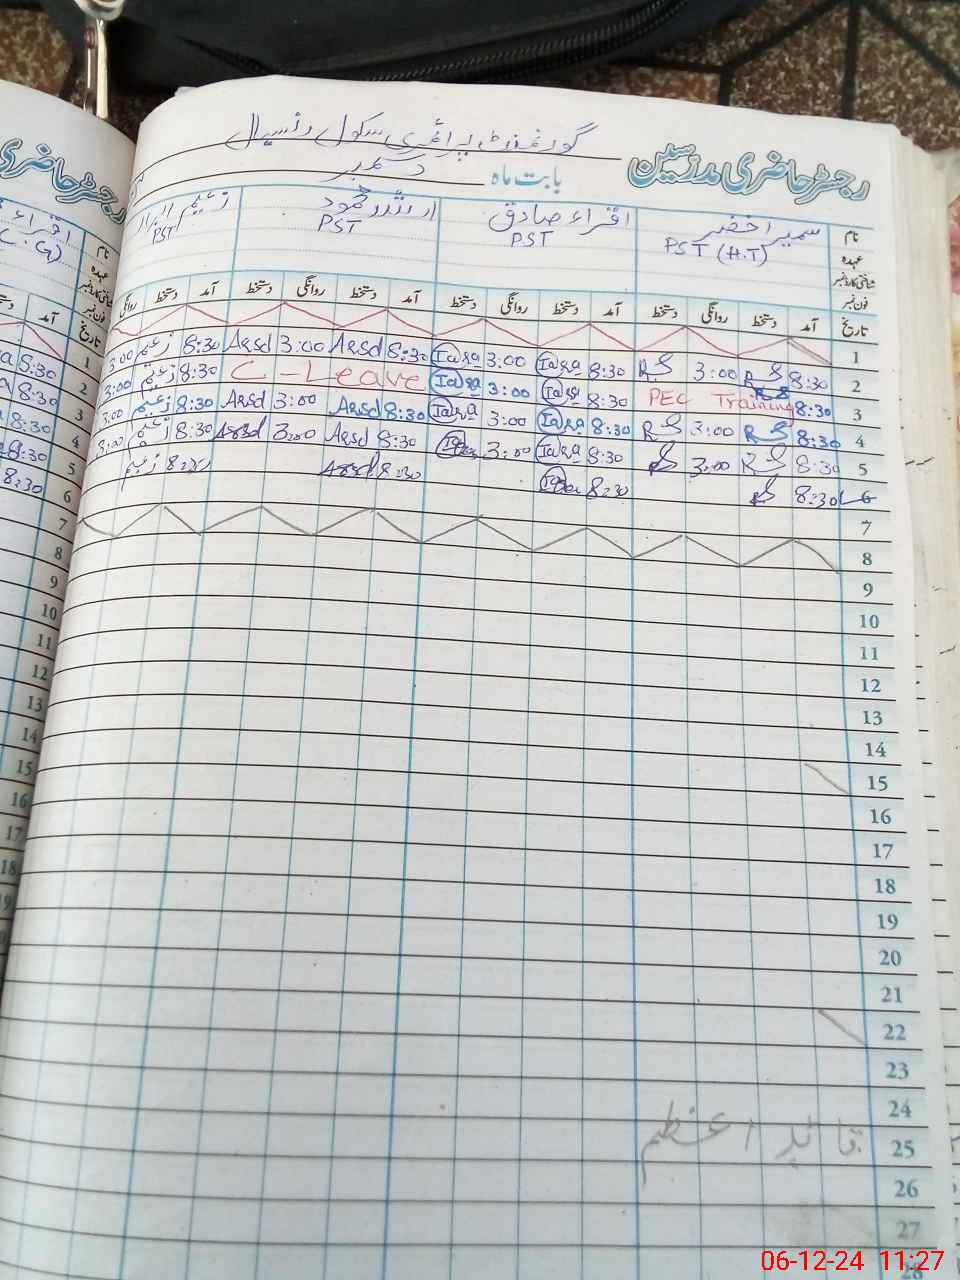 گورنمنٹ پرائمری سکول
رجسٹر حاضری مدرسین
بابت ماہ دسمبر
نام سمیرا خضر اقراء صادق ارشد محمود زعیم
عہدہ PST (H.T) PST PST PST
شناختی کارڈ نمبر
فون نمبر
تاریخ آمد دستخط روانگی دستخط آمد دستخط روانگی دستخط آمد دستخط روانگی دستخط آمد دستخط روانگی
1
2 8:30 3:00 8:30 Iqra 3:00 Iqra 8:30 Arsd 3:00 Arsd 8:30 زعیم 3:00
3 8:30 PEC Training 8:30 Iqra 3:00 Iqra C-Leave 8:30 زعیم 3:00
4 8:30 3:00 8:30 Iqra 3:00 Iqra 8:30 Arsd 3:00 Arsd 8:30 زعیم 3:00
5 8:30 3:00 8:30 Iqra 3:00 8:30 Arsd 3:00 Arsd 8:30 زعیم 3:00
6 8:30 8:30 8:30 Arsd زعیم
7
8
9
10
11
12
13
14
15
16
17
18
19
20
21
22
23
24
25 قائد اعظم
26
27
28
رجسٹر حاضری
نام
عہدہ
شناختی کارڈ نمبر
فون نمبر
تاریخ آمد
1
2 8:30
3 8:30
4 8:30
5 8:30
6 8:30
7
8
9
10
11
12
13
14
15
16
17
18
06-12-24 11:27